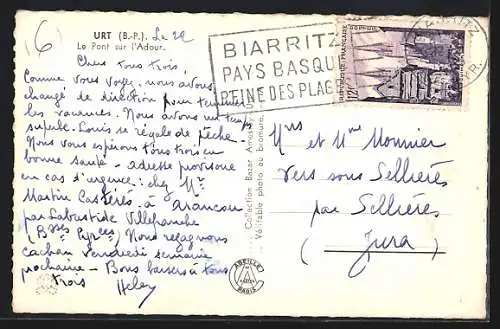 URT (B.-P.) Le 22
Le Pont sur l'Adour.
Chers tous trois,
Comme vous voyez, nous avons
changé de direction pour terminer
les vacances. Nous avons un temps
superbe. Louis se régale de pêche.
Nous vous espérons tous trois en
bonne santé - adresse provisoire
en cas d'urgence: chez Mr
Martin Castères à Arancou
par Labastide Villefranche
(Basses Pyrées) Nous regagnons
Cachan vendredi semaine
prochaine - Bons baisers à tous
trois Heley
(6)
BIARRITZ
PAYS BASQUE
REINE DES PLAG
BIARRITZ
REPUBLIQUE FRANÇAISE
QUIMPER
12F
Mrs et Mme Monnier
Vers sous Sellières
par Sellières
Jura
Collection Bazar
Véritable photo au bromure.
ABEILLE
PARIS